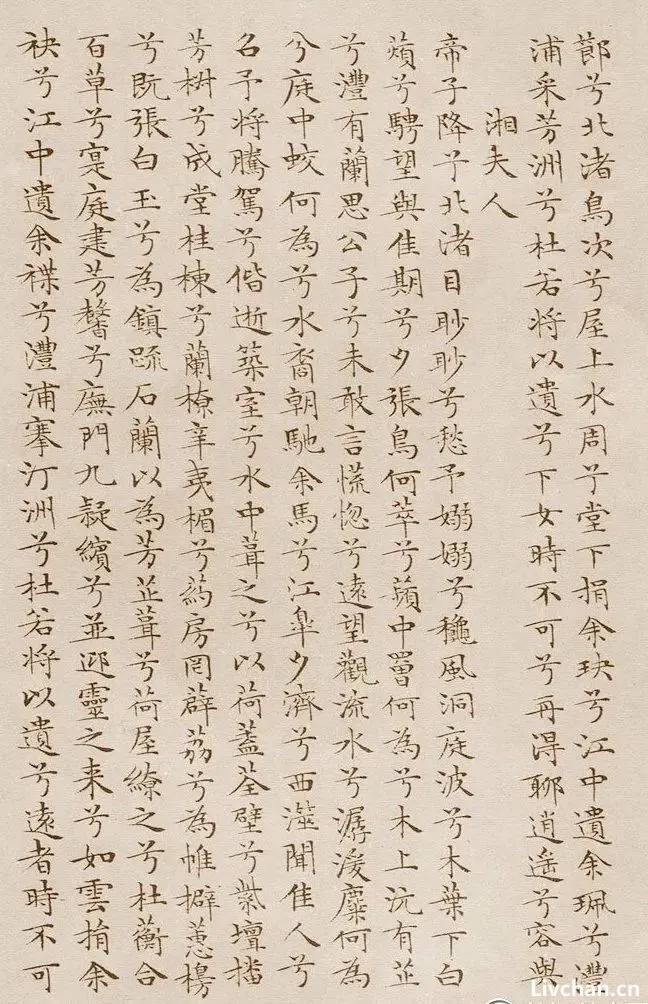 鄣兮北渚鳥次兮屋上水周兮堂下捐余玦兮江中遺余珮兮澧
浦采芳洲兮杜若將以遺兮下女時不可兮再得聊逍遙兮容與
湘夫人
帝子降兮北渚目眇眇兮愁予嫋嫋兮秋風洞庭波兮木葉下白
薠兮騁望與佳期兮夕張鳥何萃兮蘋中罾何為兮木上沅有芷
兮澧有蘭思公子兮未敢言慌惚兮遠望觀流水兮潺湲麋何為
兮庭中蛟何為兮水裔朝馳余馬兮江皐夕濟兮西澨聞佳人兮
召予將騰駕兮偕逝築室兮水中葺之兮以荷蓋荃壁兮紫壇播
芳椒兮成堂桂棟兮蘭橑辛夷楣兮葯房罔薜荔兮為帷擗蕙櫋
兮既張白玉兮為鎮疏石蘭以為芳芷葺兮荷屋繚之兮杜蘅合
百草兮寔庭建芳馨兮廡門九疑繽兮並迎靈之来兮如雲捐余
袂兮江中遺余褋兮澧浦搴汀洲兮杜若將以遺兮遠者時不可
Livchan.cn